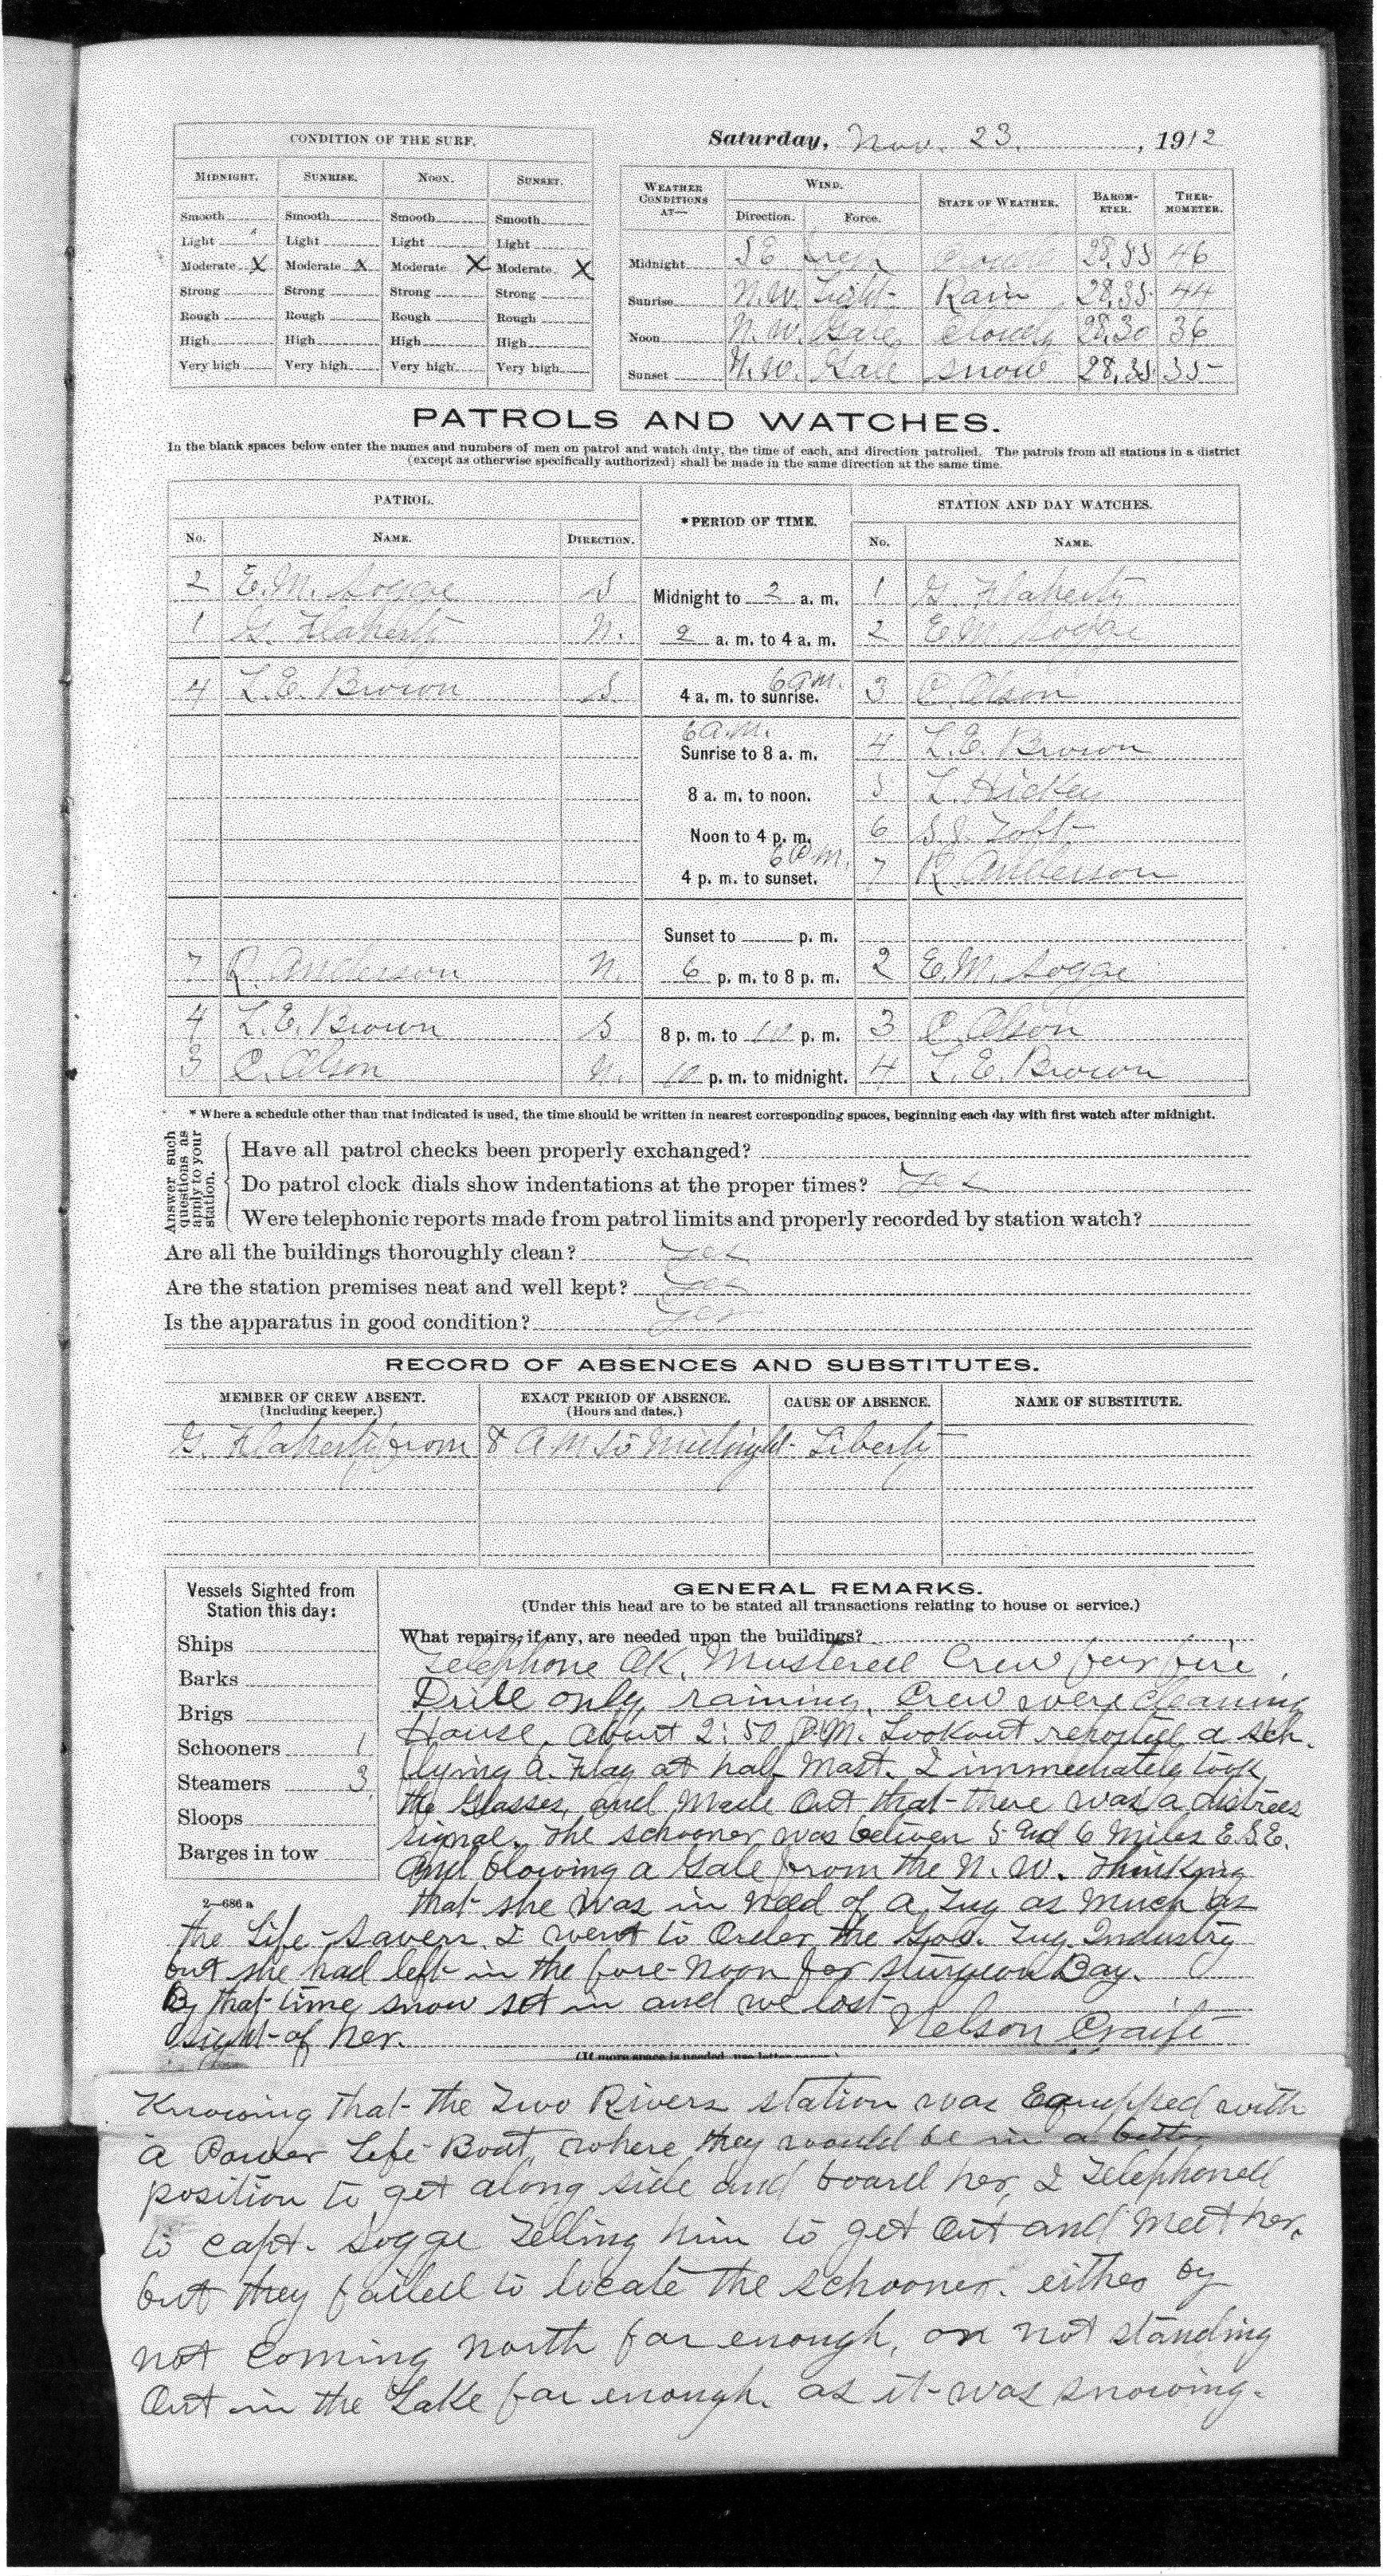 CONDITION OF THE SURF.
MIDNIGHT. SUNRISE. NOON. SUNSET.
Smooth Smooth Smooth Smooth
Light Light Light Light
Moderate X Moderate X Moderate X Moderate X
Strong Strong Strong Strong
Rough Rough Rough Rough
High High High High
Very high Very high Very high Very high
Saturday, Nov. 23, 1912
WEATHER CONDITIONS AT— WIND. STATE OF WEATHER. BAROMETER. THERMOMETER.
Direction. Force.
Midnight SE Cloudy 28,85 46
Sunrise N.W. Light Rain 28,35 44
Noon N.W. Gale Cloudy 28,30 36
Sunset N.W. Gale Snow 28,35 35
PATROLS AND WATCHES.
In the blank spaces below enter the names and numbers of men on patrol and watch duty, the time of each, and direction patrolled. The patrols from all stations in a district
(except as otherwise specifically authorized) shall be made in the same direction at the same time.
PATROL. *PERIOD OF TIME. STATION AND DAY WATCHES.
No. NAME. DIRECTION. No. NAME.
2 E.M. Sogge S Midnight to 2 a. m. 1 G. Flaherty
1 G. Flaherty N. 2 a. m. to 4 a. m. 2 E.M. Sogge
4 L.E. Brown S. 4 a. m. to sunrise. 6 a.m. 3 C. Olson
6 A.M.
Sunrise to 8 a. m. 4 L.E. Brown
8 a. m. to noon. 5 L. Hickey
Noon to 4 p. m. 6 S.S. Toft
6 P.M.
4 p. m. to sunset. 7 R. Anderson
Sunset to p. m.
7 R. Anderson N. 6 p. m. to 8 p. m. 2 E.M. Sogge
4 L.E. Brown S 8 p. m. to 10 p. m. 3 C. Olson
3 C. Olson N. 10 p. m. to midnight. 4 L.E. Brown
* Where a schedule other than that indicated is used, the time should be written in nearest corresponding spaces, beginning each day with first watch after midnight.
Answer such questions as apply to your station.
Have all patrol checks been properly exchanged?
Do patrol clock dials show indentations at the proper times? Yes
Were telephonic reports made from patrol limits and properly recorded by station watch?
Are all the buildings thoroughly clean? Yes
Are the station premises neat and well kept? Yes
Is the apparatus in good condition? Yes
RECORD OF ABSENCES AND SUBSTITUTES.
MEMBER OF CREW ABSENT. (Including keeper.) EXACT PERIOD OF ABSENCE. (Hours and dates.) CAUSE OF ABSENCE. NAME OF SUBSTITUTE.
G. Flaherty from 8 A M to Midnight Liberty
Vessels Sighted from Station this day:
Ships
Barks
Brigs
Schooners 1
Steamers 3
Sloops
Barges in tow
2—686 a
GENERAL REMARKS.
(Under this head are to be stated all transactions relating to house or service.)
What repairs, if any, are needed upon the buildings?
Telephone OK. Mustered Crew for fire
Drill only, raining. Crew were cleaning
House. About 2:50 P.M. Lookout reported a sch.
flying a Flag at half Mast. I immediately took
the Glasses, and Made Out that there was a distress
signal. The schooner was between 5 and 6 Miles E.S.E.
and blowing a Gale from the N. W. Thinking
that she was in need of a Tug as much as
the Life-Savers. I went to Order the Gov. Tug Industry
but she had left in the fore-Noon for Sturgeon Bay.
By that time snow set in and we lost
sight of her. Nelson Craite
(If more space is needed, use letter
Knowing that the Two Rivers station was Equipped with
a Power Life-Boat, where they would be in a better
position to get along side and board her, I Telephoned
to Capt. Sogge Telling him to get Out and Meet her,
but they failed to locate the schooner. either by
not coming north far enough, or not standing
Out in the Lake far enough. as it was snowing.